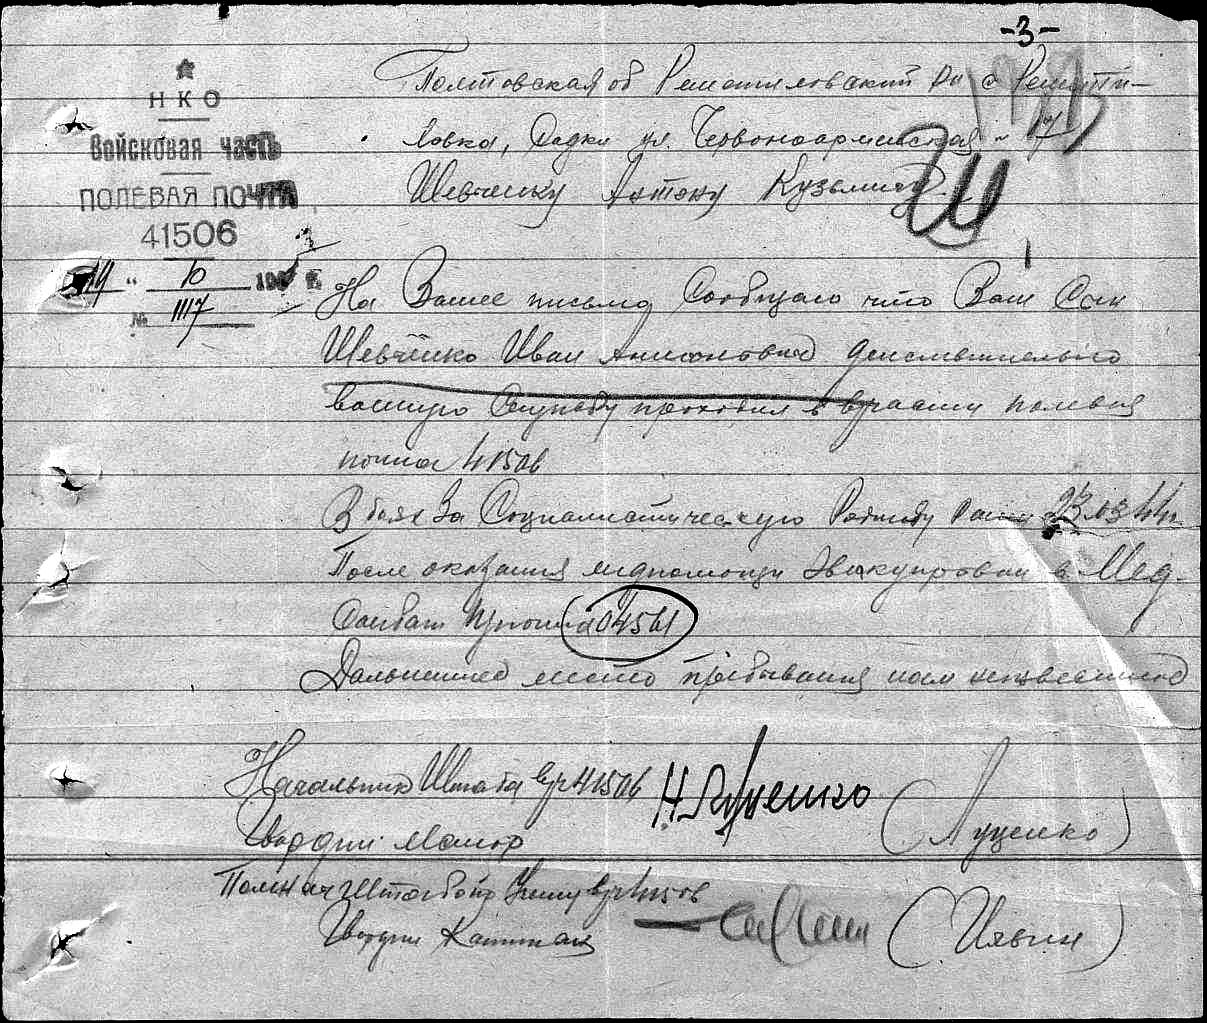 -3-
НКО
Войсковая часть
ПОЛЕВАЯ ПОЧТА
41506
19 " 10 194 г.
№ 1117
Полтовская об Решетиловский рн с Решети-
ловка, ул. Червоноармейская 7
Шевченку Антону Кузьмичу
Ш
На Ваше письмо Сообщаю что Ваш Сын
Шевченко Иван Антонович действительно
воинскую Службу проходил в в/части полевая
почта 41506
В боях За Социалистическую Родину ранен 23.03.44г.
После оказания медпомощи Эвакуирован в Мед.
Санбат П/почта 04561
Дальнейшее место пребывания нам неизвестно
Начальник Штаба в/ч 41506
Гвардии Майор
(Луценко)
Помнач Штаба по в/ч 41506
Гвардии Капитан
(Ильин)